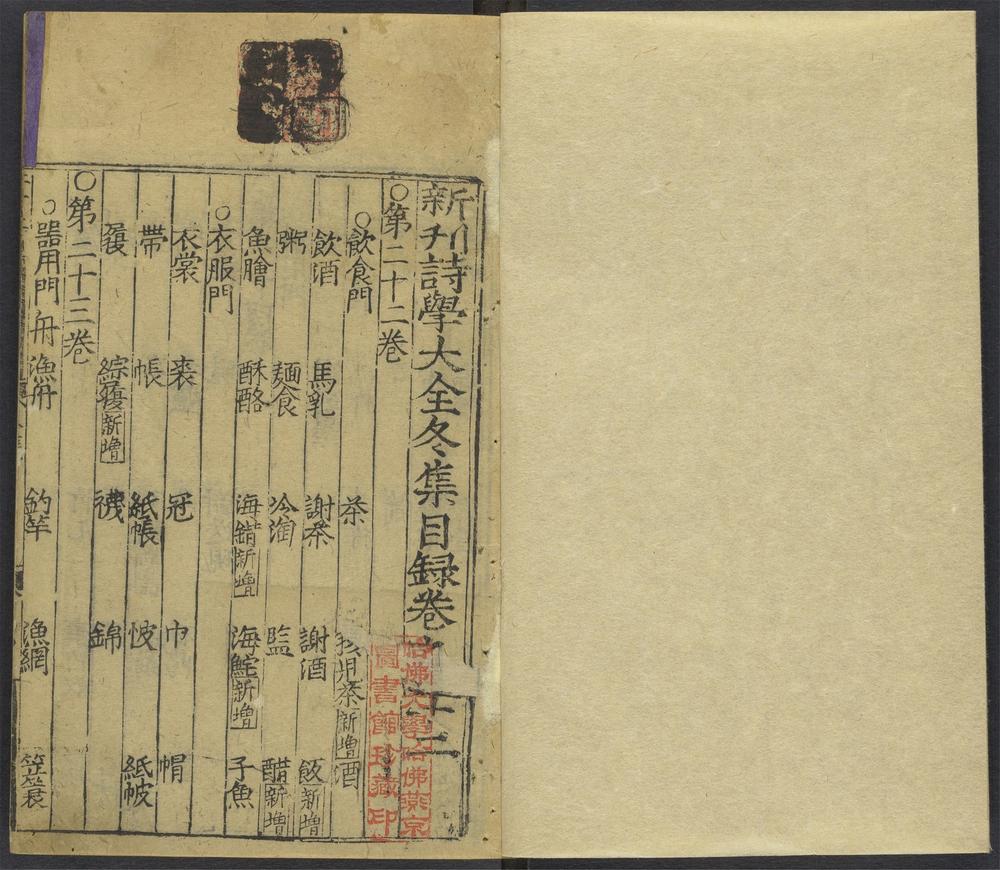 新刊詩學大全冬集目録卷 十二
○第二十二卷
○飲食門 茶 茶新増 酒
飲酒 馬乳 謝茶 謝酒 飯新増
粥 麺食 冷淘 監 醋新増
魚膾 酥酪 海錯新増 海鮀新増 子魚
○衣服門
衣裳 裘 冠 巾 帽
帶 帳 紙帳 帔 紙帔
履 綜履新増 襪 錦
○第二十三卷
○器用門 舟 漁舟 釣竿 漁網 笠簑
哈佛大學哈佛燕京
圖書館珍藏印